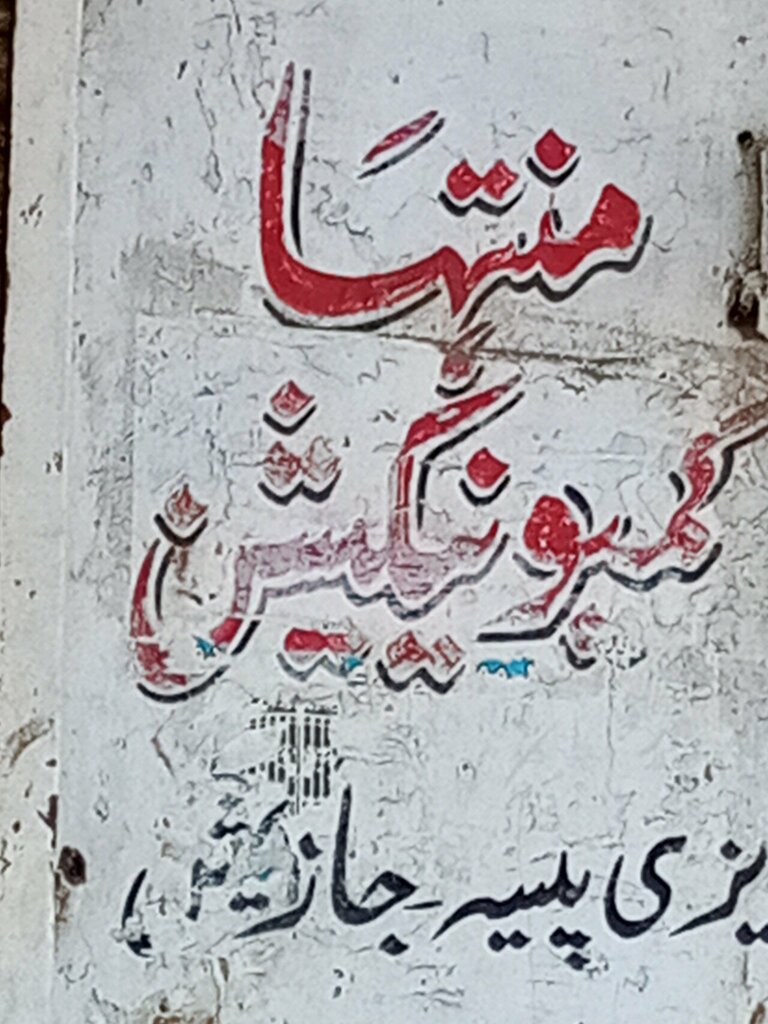 منتہا
کمیونیکیشن
یزی پیسہ جاز کیش